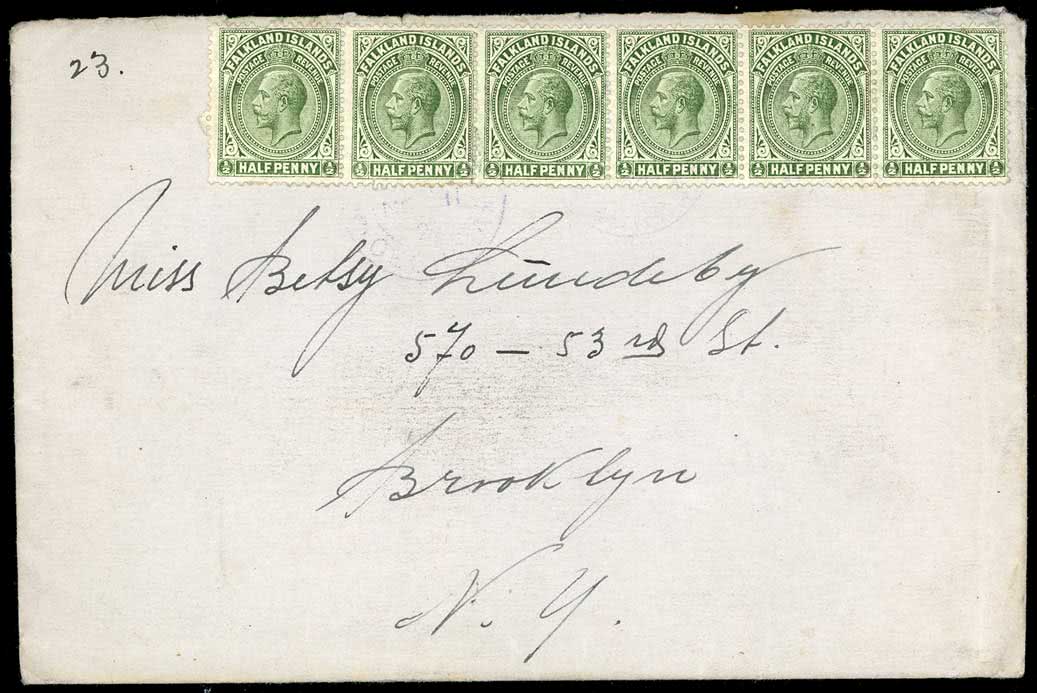 23.
FALKLAND ISLANDS FALKLAND ISLANDS FALKLAND ISLANDS FALKLAND ISLANDS FALKLAND ISLANDS FALKLAND ISLANDS
POSTAGE REVENUE POSTAGE REVENUE POSTAGE REVENUE POSTAGE REVENUE POSTAGE REVENUE POSTAGE REVENUE
½ HALF PENNY ½ ½ HALF PENNY ½ ½ HALF PENNY ½ ½ HALF PENNY ½ ½ HALF PENNY ½ ½ HALF PENNY ½
Miss Betsy Lundeby
570 — 53rd St.
Brooklyn
N. Y.